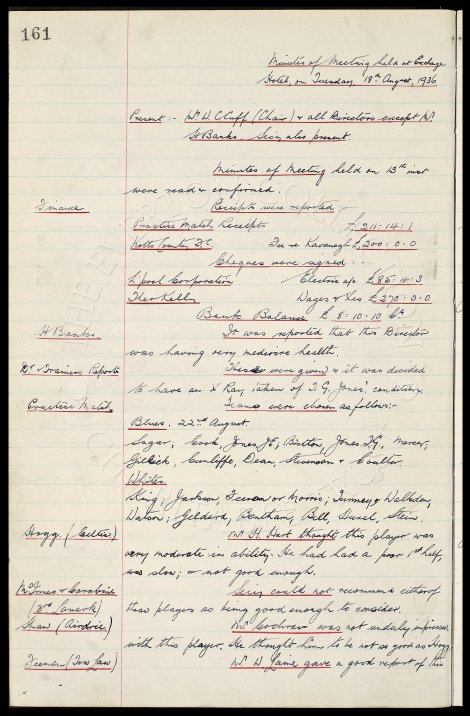 161
Minutes of Meeting held at Exchange
Hotel, on Tuesday, 18th August, 1936
Present :- Mr W C Cuff (Chair) & all Directors except Mr
H Banks. Secy also present.
Minutes of Meeting held on 13th inst
were read & confirmed.
Finance Receipts were reported :-
Practice Match Receipts £211:14:1
Notts County F.C. Fee re Kavanagh £200:0:0
Cheques were signed :-
L'pool Corporation Electric a/c £85:4:3
Theo Kelly Wages & Exs £270:0:0
Bank Balance £8:10:10
H Banks. It was reported that this Director
was having very health.
Dr & Trainers Reports These were given & it was decided
to have an X Ray taken of T. G. Jones' condition.
Practice Match. Teams were chosen as follows:
Blues. 22nd August
Sagar; Cook, Jones JE; Britton, Jones T.G., Mercer;
Gillick, Cunliffe, Dean, Stevenson & Coulter.
Whites.
King; Jackson, or Morris;
Watson; Geldard, Bentham, Bell, Hurel, Stein.
Hogg (Celtic) Mr A. Hart thought this player was
very moderate in ability. He had had a poor 1st half,
was slow; & not good enough.
McInnes & Carabine
(3rd Lanark) Secy could not recommend either of
these players as being good enough to consider.
Shaw (Airdrie) Mr Cochran was not unduly impressed
with this player. He thought him to be not as good as Hogg.
(Tow Law) Mr D gave a good report of this